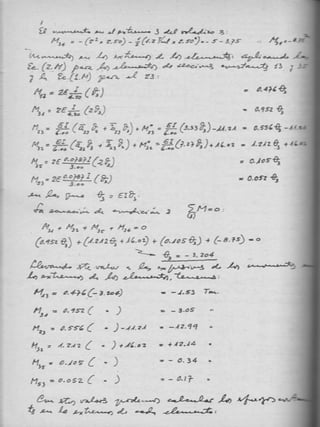 El momento en el extremo 3 del voladizo 3:
M₃₄ = - (2¹ × 2.50) - ½ (1.2 T/ml × 2.50²) = - 5 - 3.75 M₃₄ = -8.75
Momentos en los extremos de los elementos: aplicando la
Ec. (2.M) para los elementos de sección constante 13 y 35
y la Ec. (1.M) para el 23:
M₁₃ = 2E I/6.30 (θ₃) = 0.476 θ₃
M₃₁ = 2E I/6.30 (2θ₃) = 0.952 θ₃
M₂₃ = EI/6.00 (3.33 θ₃) - 11.21 = 0.556 θ₃ - 11.
M₃₂ = EI/6.00 (7.27 θ₃) + 16.02 = 1.212 θ₃ + 16.0
M₃₅ = 2E 0.0787 I/3.00 (2θ₃) = 0.105 θ₃
M₅₃ = 2E 0.0787 I/3.00 (θ₃) = 0.052 θ₃
en las que θ₃ = EIθ₃
La ecuación de condición 3 ΣM = 0
M₃₁ + M₃₂ + M₃₅ + M₃₄ = 0
(0.952 θ₃) + (1.212 θ₃ + 16.02) + (0.105 θ₃) + (-8.75) = 0
θ₃ = - 3.204
Llevando este valor a las expresiones de los momentos
en los extremos de los elementos, tenemos:
M₁₃ = 0.476 (-3.204) = - 1.53 Tm.
M₃₁ = 0.952 ( " ) = - 3.05 "
M₂₃ = 0.556 ( " ) - 11.21 = - 12.99 "
M₃₂ = 1.212 ( " ) + 16.02 = + 12.14 "
M₃₅ = 0.105 ( " ) = - 0.34 "
M₅₃ = 0.052 ( " ) = - 0.17 "
Con estos valores podemos calcular los esfuerzos
en los extremos de cada elemento: